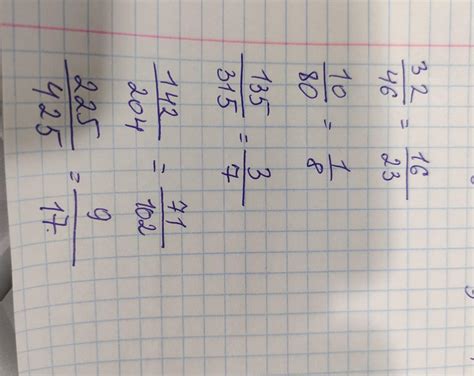 32/46 = 16/23
10/80 = 1/8
135/315 = 3/7
142/204 = 71/102
225/425 = 9/17